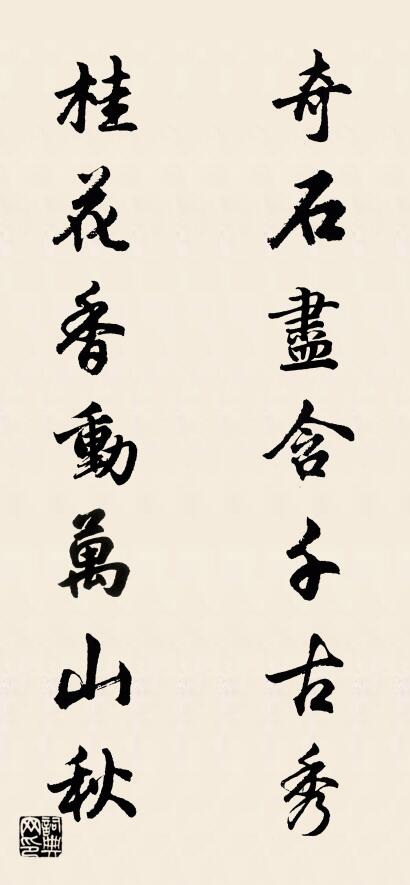 奇石盡含千古秀
桂花香動萬山秋
詞典網印